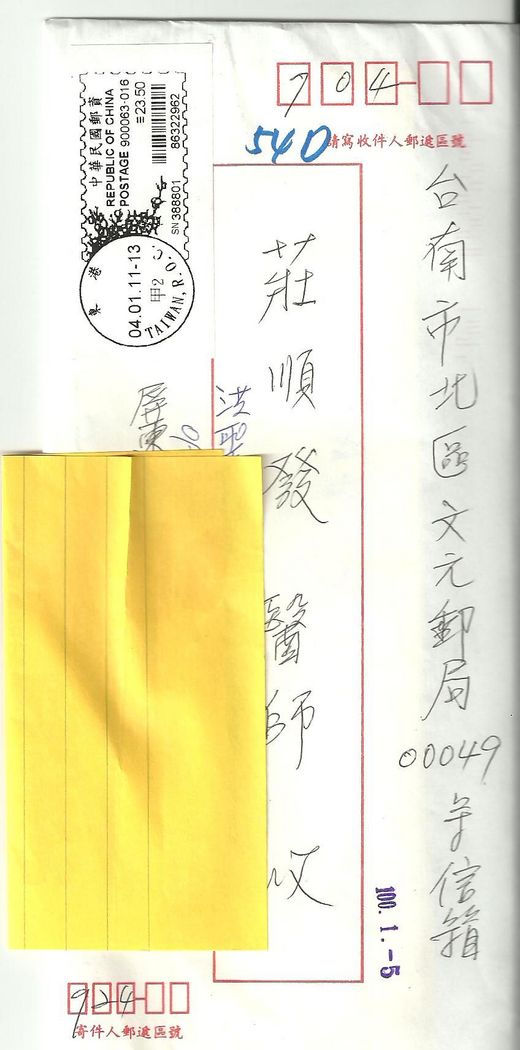 704
請寫收件人郵遞區號
540
台南市北區文元郵局
00049
号信箱
莊順發醫師收
中華民國郵資
REPUBLIC OF CHINA
POSTAGE 900063-016
≡23.50
86322962
SN 388801
東港
04.01.11-13
甲2
TAIWAN, R.O.C.
洪聖
屏東
100.1.-5
924
寄件人郵遞區號